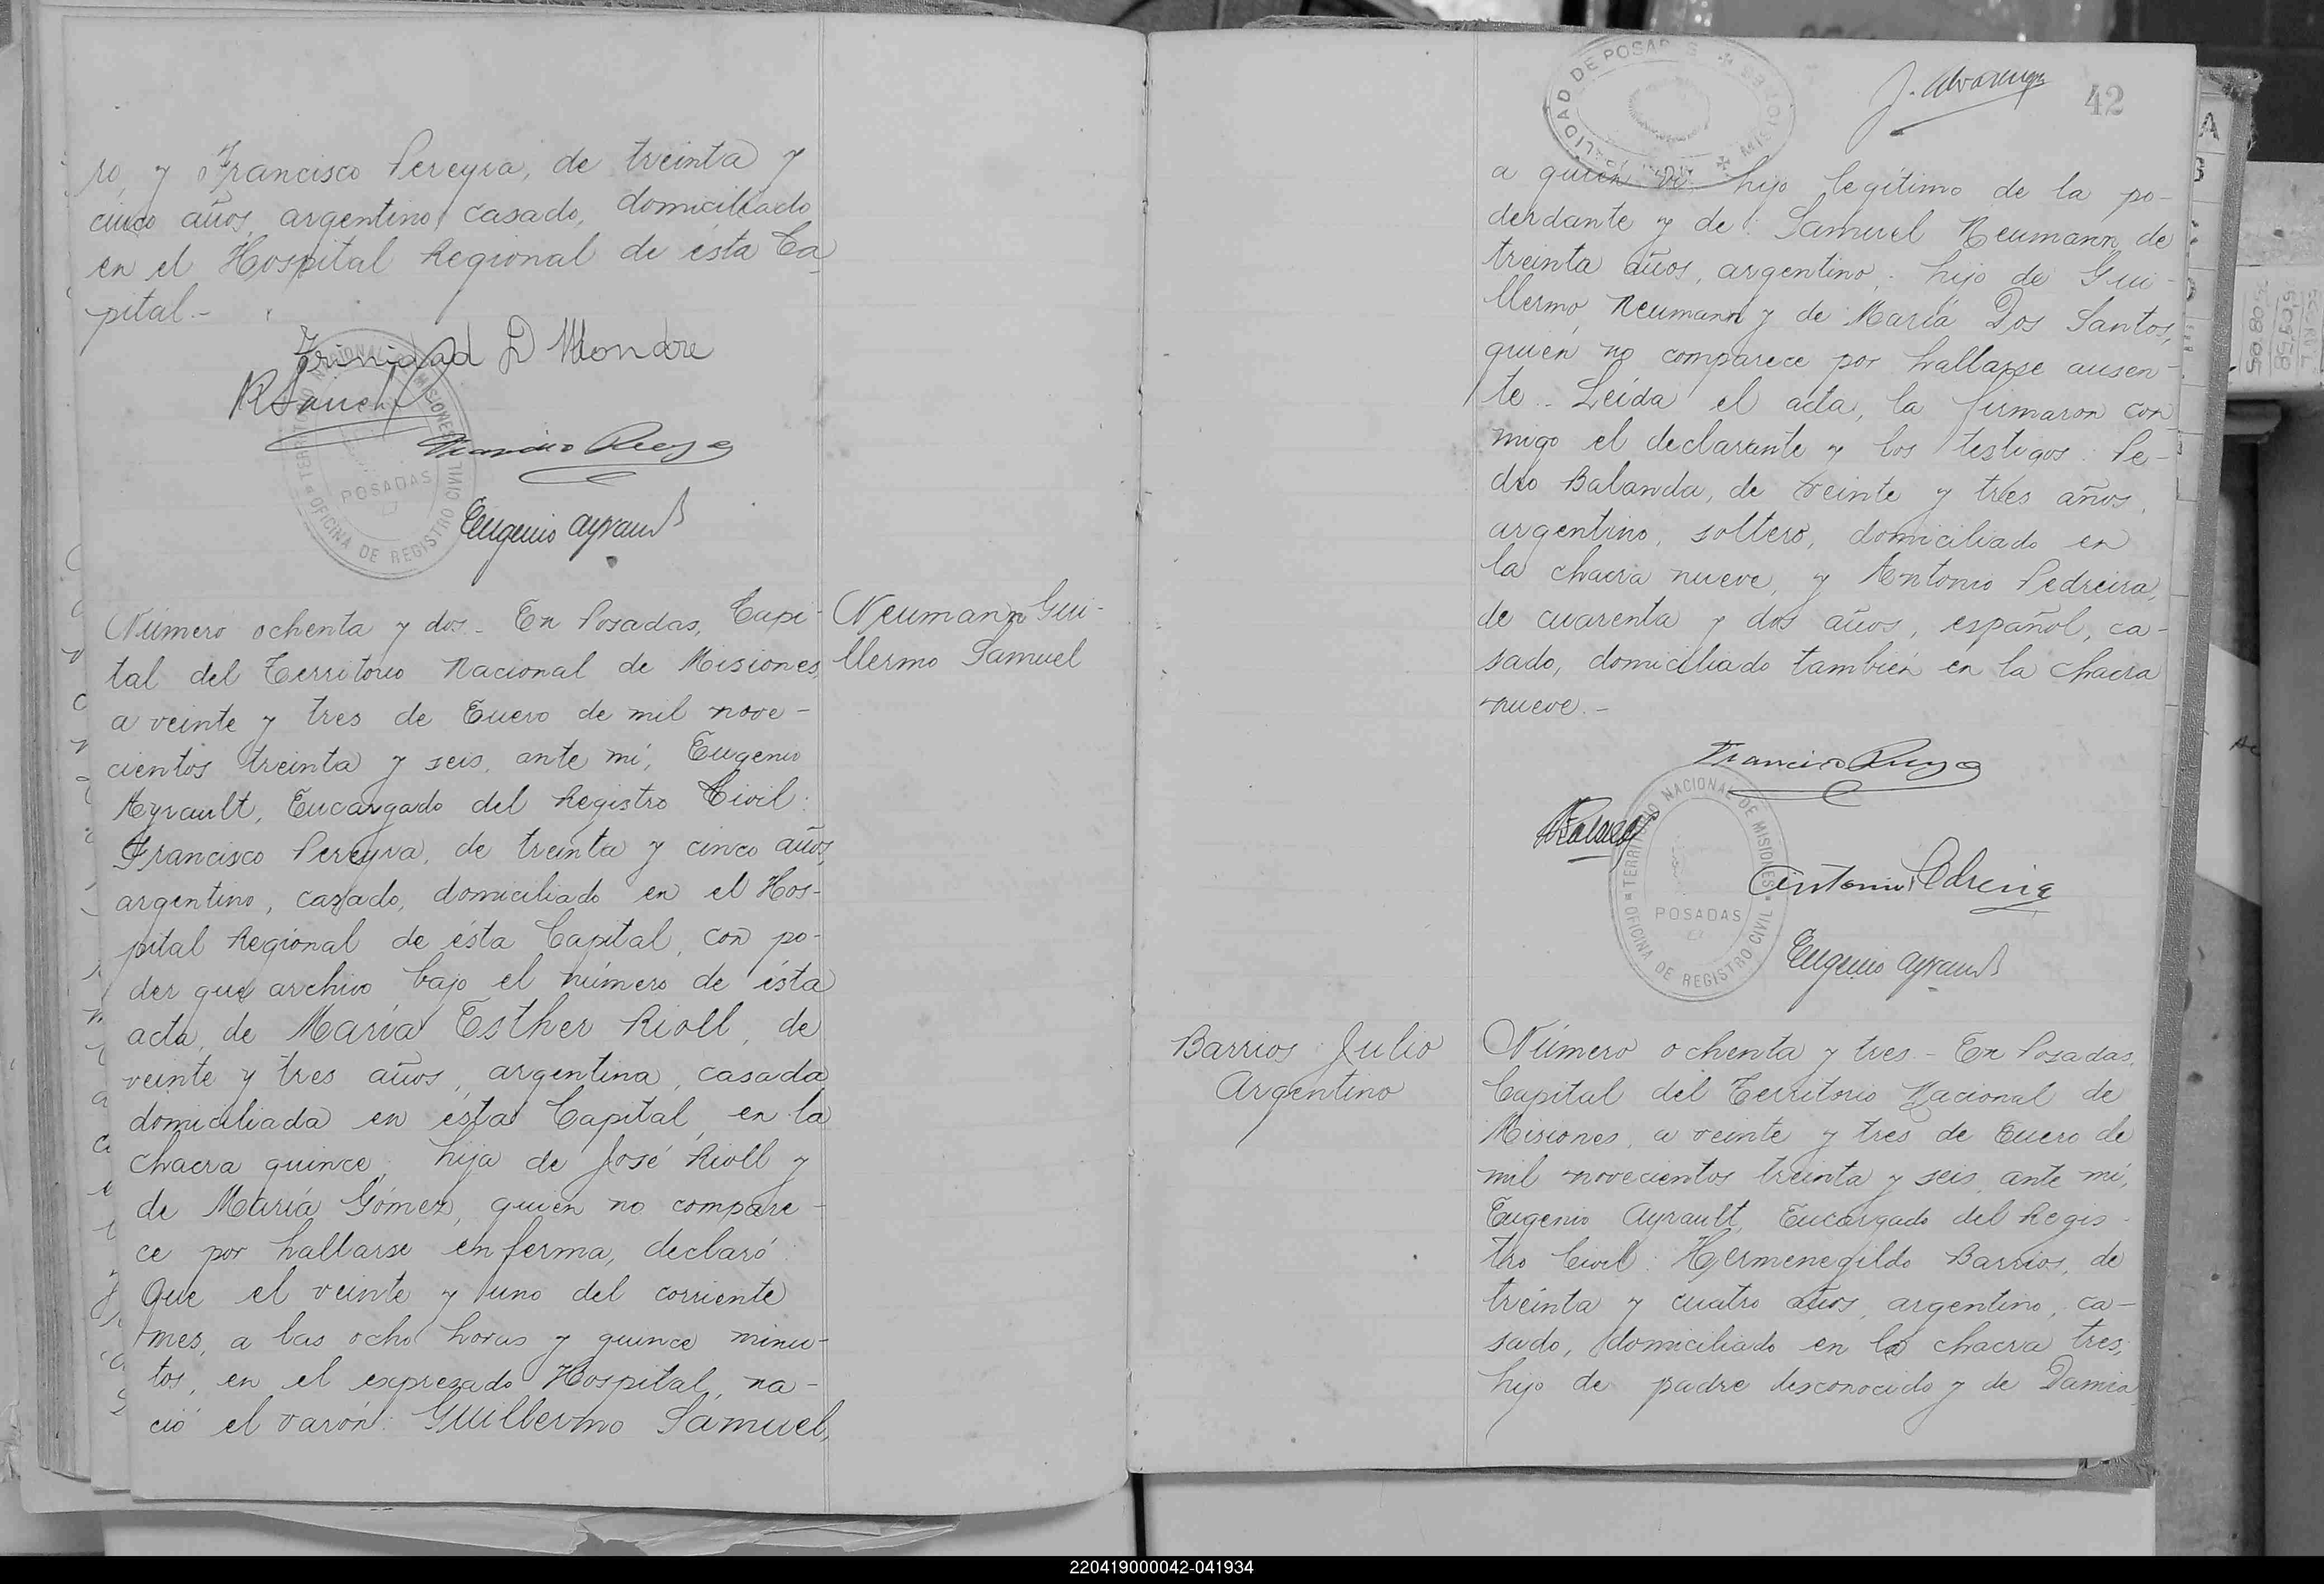 ro, y Francisco Pereyra, de treinta y
cinco años, argentino, casado, domiciliado
en el Hospital Regional de ésta Ca-
pital.-
Trinidad D Mondre
Eugenio Ayrault
TERRITORIO NACIONAL DE MISIONES
POSADAS
OFICINA DE REGISTRO CIVIL
Número ochenta y dos_ En Posadas, Capi-
tal del Territorio Nacional de Misiones,
a veinte y tres de Enero de mil nove-
cientos treinta y seis, ante mí, Eugenio
Ayrault, Encargado del Registro Civil:
Francisco Pereyra, de treinta y cinco años,
argentino, casado, domiciliado en el Hos-
pital Regional de ésta Capital, con po-
der que archivo bajo el número de ésta
acta, de María Esther Rioll, de
veinte y tres años, argentina, casada
domiciliada en ésta Capital, en la
chacra quince, hija de José Rioll y
de María Gómez, quien no compare-
ce por hallarse enferma, declaró:
Que el veinte y uno del corriente
mes, a las ocho horas y quince minu-
tos, en el expresado Hospital, na-
ció el varón: Guillermo Samuel,
Neumann Gui-
llermo Samuel
DE POSADAS
MISIONES
J. Alvarenga
42
a quien vi hijo legítimo de la po-
derdante y de: Samuel Neumann, de
treinta años, argentino, hijo de Gui-
llermo Neumann y de María Dos Santos,
quien no comparece por hallarse ausen-
te_ Leída el acta, la firmaron con
migo el declarante y los testigos: Pe-
dro Balanda, de veinte y tres años,
argentino, soltero, domiciliado en
la chacra nueve, y Antonio Pedreira,
de cuarenta y dos años, español, ca-
sado, domiciliado también en la chacra
nueve.-
Antonio Pedreira
Eugenio Ayrault
TERRITORIO NACIONAL DE MISIONES
POSADAS
OFICINA DE REGISTRO CIVIL
Barrios Julio
Argentino
Número ochenta y tres.- En Posadas,
Capital del Territorio Nacional de
Misiones, a veinte y tres de Enero de
mil novecientos treinta y seis, ante mí,
Eugenio Ayrault, Encargado del Regis-
tro Civil: Hermenegildo Barrios, de
treinta y cuatro años, argentino, ca-
sado, domiciliado en la chacra tres,
hijo de padre desconocido y de Damia
220419000042-041934